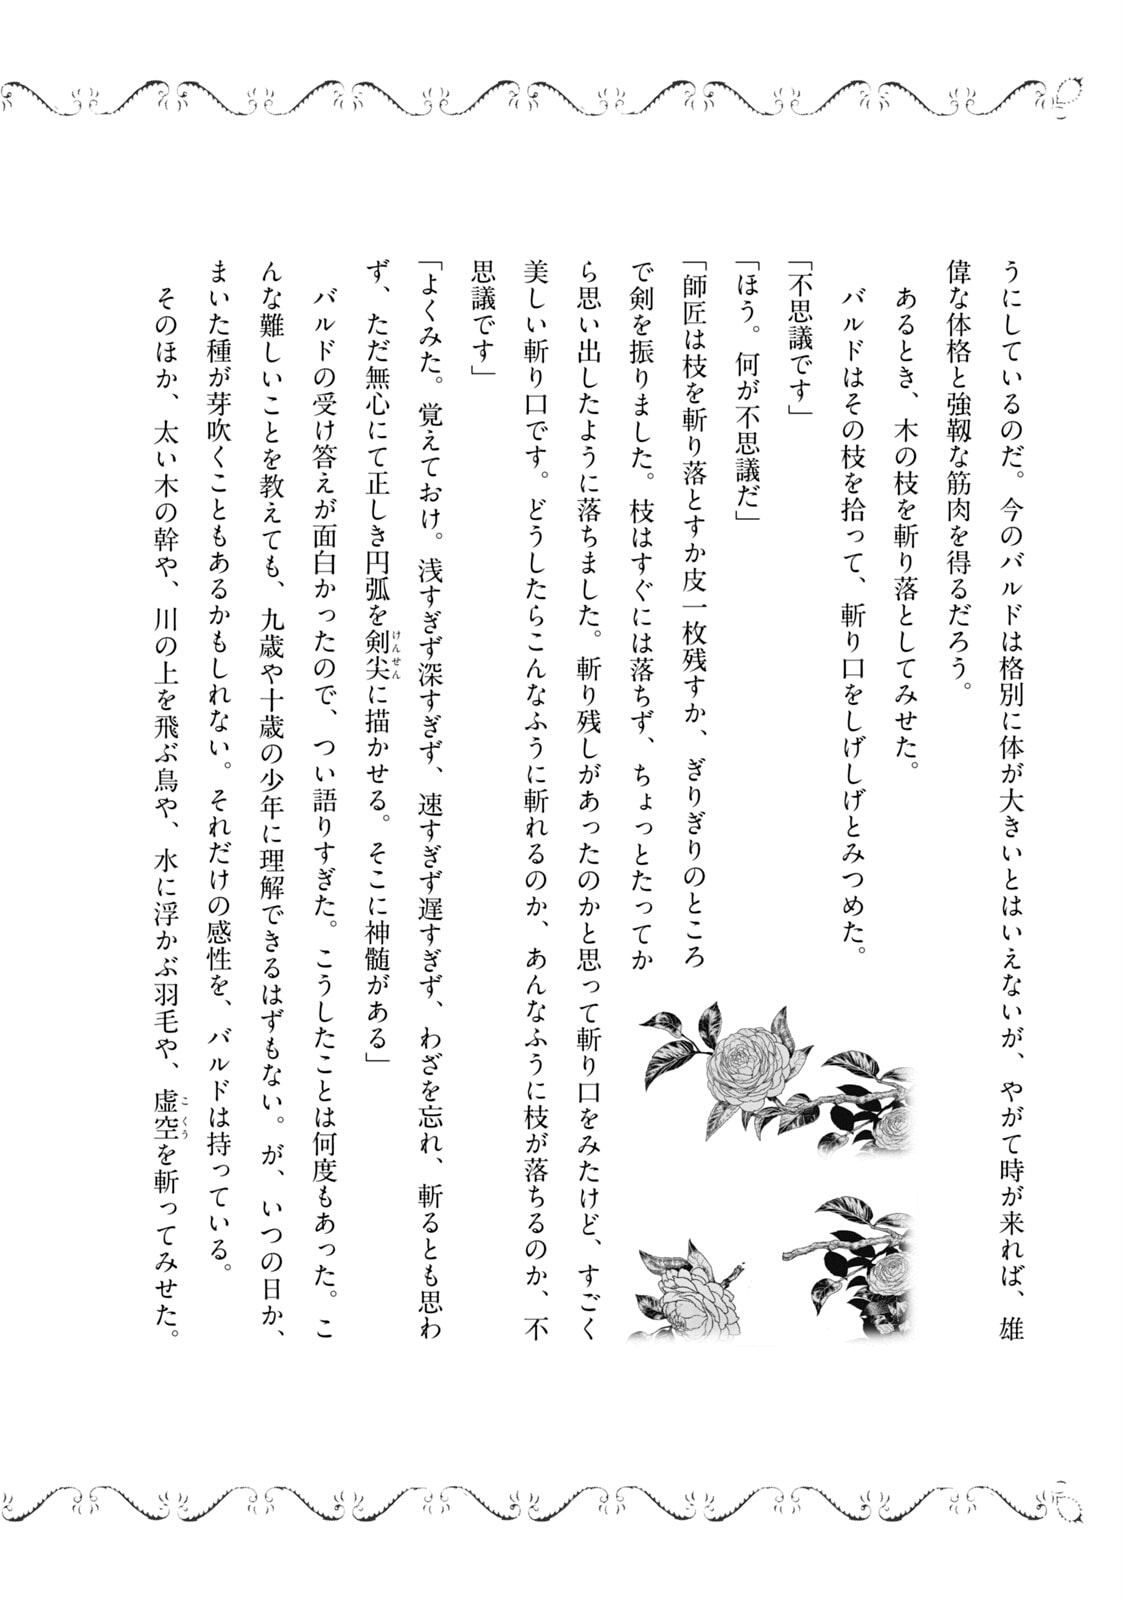 うにしているのだ。今のバルドは格別に体が大きいとはいえないが、やがて時が来れば、雄
偉な体格と強靱な筋肉を得るだろう。
あるとき、木の枝を斬り落としてみせた。
バルドはその枝を拾って、斬り口をしげしげとみつめた。
「不思議です」
「ほう。何が不思議だ」
「師匠は枝を斬り落とすか皮一枚残すか、ぎりぎりのところ
で剣を振りました。枝はすぐには落ちず、ちょっとたってか
ら思い出したように落ちました。斬り残しがあったのかと思って斬り口をみたけど、すごく
美しい斬り口です。どうしたらこんなふうに斬れるのか、あんなふうに枝が落ちるのか、不
思議です」
「よくみた。覚えておけ。浅すぎず深すぎず、速すぎず遅すぎず、わざを忘れ、斬るとも思わ
ず、ただ無心にて正しき円弧を剣尖に描かせる。そこに神髄がある」
けんせん
バルドの受け答えが面白かったので、つい語りすぎた。こうしたことは何度もあった。こ
んな難しいことを教えても、九歳や十歳の少年に理解できるはずもない。が、いつの日か、
まいた種が芽吹くこともあるかもしれない。それだけの感性を、バルドは持っている。
そのほか、太い木の幹や、川の上を飛ぶ鳥や、水に浮かぶ羽毛や、虚空を斬ってみせた。
こくう